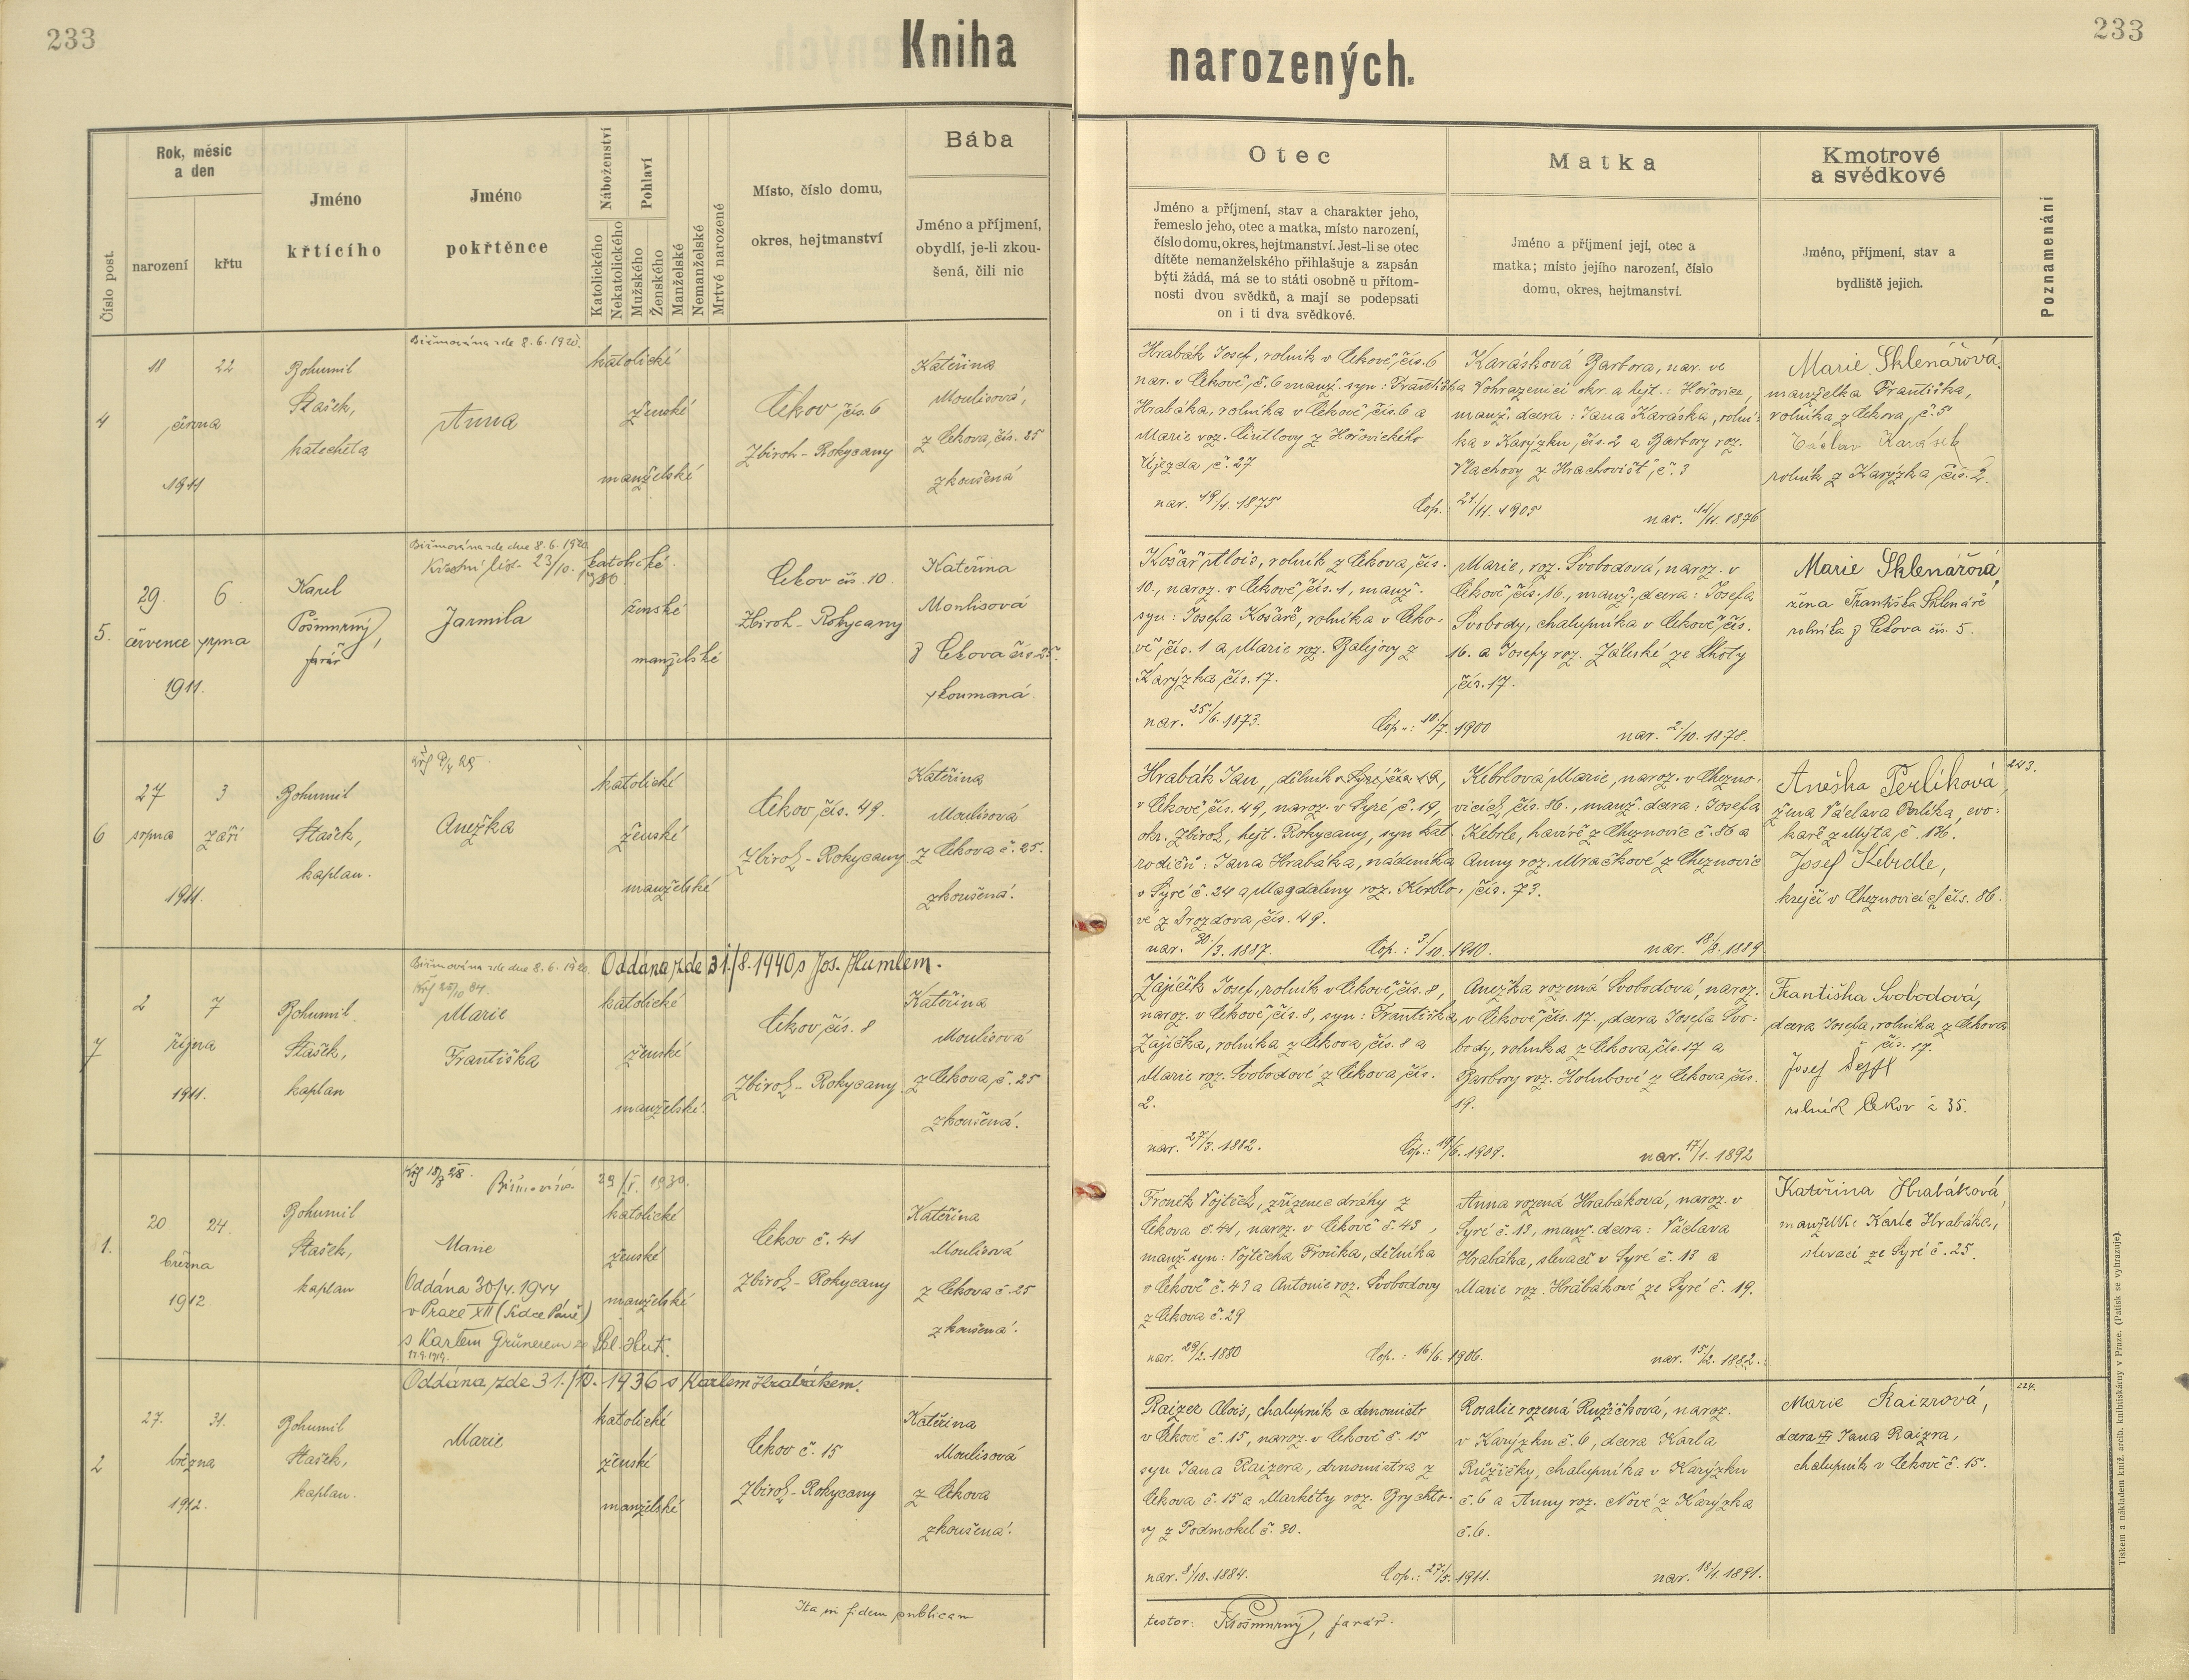 233
Kniha
narozených.
233
Číslo post.
Rok, měsíc
a den
narození
křtu
Jméno
křtícího
Jméno
pokřtěnce
Náboženství
Katolického
Nekatolického
Pohlaví
Mužského
Ženského
Manželské
Nemanželské
Mrtvě narozené
Místo, číslo domu,
okres, hejtmanství
Bába
Jméno a příjmení,
obydlí, je-li zkou-
šená, čili nic
Otec
Jméno a příjmení, stav a charakter jeho,
řemeslo jeho, otec a matka, místo narození,
číslo domu, okres, hejtmanství. Jest-li se otec
dítěte nemanželského přihlašuje a zapsán
býti žádá, má se to státi osobně u přítom-
nosti dvou svědků, a mají se podepsati
on i ti dva svědkové.
Matka
Jméno a příjmení její, otec a
matka; místo jejího narození, číslo
domu, okres, hejtmanství.
Kmotrové
a svědkové
Jméno, příjmení, stav a
bydliště jejich.
Poznamenání
4
18 22
června
1911
Bohumil
Stašek,
katecheta
Biřmována zde 8.6.1920.
Anna
katolické
ženské
manželské
Cekov, čís. 6
Zbiroh - Rokycany
Kateřina
Moulisová,
z Cekova, čís. 25
zkoušená
Hrabák Josef, rolník v Cekově, čís. 6
nar. v Cekově č. 6 manž. syn: Františka
Hrabáka, rolníka v Cekově čís. 6 a
Marie roz. z Hořovického
Újezda, č. 27
nar. 19/4. 1875
Cop.: 21/11. 1905
Karásková Barbora, nar. ve
Vohrazenici okr. a hejt.: Hořovice,
manž. dcera: Jana Karáska, rolní-
ka v Karýzku, čís. 2 a Barbory roz.
Vlachovy z Hrachovišť, č. 3
nar. 14/11. 1876
Marie Sklenářová
manželka Františka,
rolníka z Cekova, č. 5
Václav Karásek
rolník z Karýzka, čís. 2.
5.
29. 6
července srpna
1911.
Karel
Pošmurný,
farář
Biřmována zde dne 8.6.1920
Křestní list 23/10. 1980.
Jarmila
katolické.
ženské
manželské
Cekov čís. 10.
Zbiroh - Rokycany
Kateřina
Moulisová
z Cekova čís 25.
zkoumaná.
Košář Alois, rolník z Cekova, čís.
10., naroz. v Cekově, čís. 1, manž.
syn: Josefa Košáře, rolníka v Ceko-
vě, čís. 1 a Marie roz. Balejovy z
Karýzka, čís. 17.
nar. 25/6. 1873.
Cop.: 10/7. 1900
Marie, roz. Svobodová, naroz. v
Cekově, čís. 16., manž. dcera: Josefa
Svobody, chalupníka v Cekově, čís.
16. a Josefy roz. Záleské ze Lhoty
čís. 17.
nar. 2/10. 1878.
Marie Sklenářová
žena Františka Sklenáře
rolníka z Cekova čís. 5.
6
27 3
srpna září
1911.
Bohumil
Stašek,
kaplan.
Anežka
katolické
ženské
manželské
Cekov, čís. 49.
Zbiroh - Rokycany.
Kateřina
Moulisová
z Cekova č. 25.
zkoušená.
Hrabák Jan, dělník
v Cekově, čís. 49, naroz. v Syré, č. 19,
okr. Zbiroh, hejt. Rokycany, syn kat.
rodičů: Jana Hrabáka, nádeníka
v Syré č. 24 a Magdaleny roz.
vé z Drozdova, čís. 49.
nar. 30/3. 1887.
Cop.: 3/10. 1910.
Kebrlová Marie, naroz. v Chezno-
vicích, čís. 86., manž. dcera: Josefa
Kebrle, havíře z Cheznovic č. 86 a
Anny roz. Mračkové z Cheznovic
čís. 73.
nar. 18/8. 1889
Anežka Perlíková
žena Václava Perlíka, cvo-
kaře z Mýta, č. 126.
Josef Kebrdle,
krejčí v Cheznovicích čís. 86.
243.
7
2 7
října
1911.
Bohumil
Stašek,
kaplan
Biřmována zde dne 8.6.1920.
Oddána zde 31./8. 1940 s Jos. Humlem.
Marie
Františka
katolické
ženské
manželské.
Cekov, čís. 8
Zbiroh - Rokycany
Kateřina
Moulisová
z Cekova, č. 25
zkoušená.
Zajíček Josef, rolník v Cekově, čís. 8,
naroz. v Cekově, čís. 8, syn: Františka
Zajíčka, rolníka z Cekova, čís. 8 a
Marie roz. Svobodové z Cekova, čís.
2.
nar. 27/3. 1882.
Cop.: 19/6. 1909.
Anežka rozená Svobodová, naroz.
v Cekově, čís. 17., dcera Josefa Svo-
body, rolníka z Cekova, čís. 17 a
Barbory roz. Holubové z Cekova, čís.
19.
nar. 17/1. 1892
Františka Svobodová,
dcera Josefa, rolníka z Cekova
čís. 17.
Josef
rolník Cekov č 35.
1.
20 24.
března
1912.
Bohumil
Stašek,
kaplan
Biřmována 29/V. 1930.
Marie
Oddána 30/4. 1944
v Praze XII (Srdce Páně)
s Karlem Grünerem
katolické
ženské
manželské
Cekov č. 41
Zbiroh - Rokycany
Kateřina
Moulisová
z Cekova č. 25
zkoušená.
Froněk Vojtěch, zřízenec dráhy z
Cekova č. 41, naroz. v Cekově č. 43,
manž. syn: Vojtěcha Froňka, dělníka
v Cekově č. 43 a Antonie roz. Svobodovy
z Cekova č. 29
nar. 29/2. 1880
Cop.: 16/6. 1906.
Anna rozená Hrabáková, naroz. v
Syré č. 13, manž. dcera: Václava
Hrabáka, slevače v Syré č. 13 a
Marie roz. Hrabákové ze Syré č. 19.
nar. 15/2. 1882.
Kateřina Hrabáková,
manželka Karla Hrabáka,
slevače ze Syré č. 25.
2
27. 31.
března
1912.
Bohumil
Stašek,
kaplan.
Oddána zde 31./10. 1936 s Karlem Hrabákem.
Marie
katolické
ženské
manželské
Cekov č. 15
Zbiroh - Rokycany
Kateřina
Moulisová
z Cekova
zkoušená.
Raizer Alois, chalupník a drnomistr
v Cekově č. 15, naroz. v Cekově č. 15
syn Jana Raizera, drnomistra z
Cekova č. 15 a Markéty roz. Brychto-
vy z Podmokel č. 80.
nar. 8/10. 1884.
Cop.: 27/5. 1911.
Rosalie rozená Ružičková, naroz.
v Karýzku č. 6, dcera Karla
Růžičky, chalupníka v Karýzku
č. 6 a Anny roz. Nové z Karýzka
č. 6.
nar. 18/1. 1891.
Marie Raizrová,
dcera Jana Raizra,
chalupník v Cekově č. 15.
224.
Ita in fidem publicam
testor: KPošmurný, farář.
Tiskem a nákladem kníž. arcib. knihtiskárny v Praze. (Patisk se vyhrazuje).